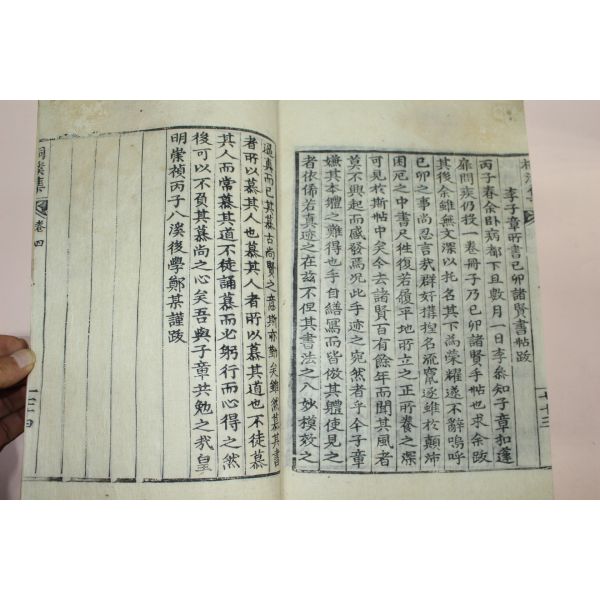 李子章所書己卯諸賢書帖跋
丙子春余卧病都下且數月一日李叅知子章扣蓬
扉問疾仍授一卷冊子乃己卯諸賢手帖也求余跋
其後余雖無文深以托名其下爲榮耀遂不辭嗚呼
己卯之事尚忍言哉群奸搆捏名流竄逐雖於顚沛
困厄之中書尺徃復若履平地所立之正所養之深
可見於斯帖中矣今去諸賢百有餘年而聞其風者
莫不興起而感發焉况此手迹之宛然者乎今子章
嫌其本軆之難得也手自繕寫而皆倣其軆使見之
者依俙若真迹之在玆不但其書法之八妙模效之
逼真而已其慕古尚賢之意斯亦勤矣雖然慕其書
者所以慕其人也慕其人者所以慕其道也不徒慕
其人而常慕其道不徒誦慕而必躬行而心得之然
後可以不負其慕尚之心矣吾與子章共勉之哉皇
明崇禎丙子八溪後學鄭某謹跋
桐溪集
卷四